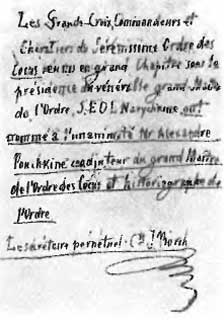 Les Grands-Croix, Commandeurs et
Chevaliers du Sérénissime Ordre des
Cocus réunis en grand Chapitre sous la
présidence du vénérable grand-Maître
de l'Ordre, S.E. D.L. Narychkine, ont
nommé à l'unanimité Mr Alexandre
Pouchkine coadjuteur du grand Maître
de l'Ordre des Cocus et historiographe de
l'Ordre.
Le secrétaire perpétuel: C-te J. Borch